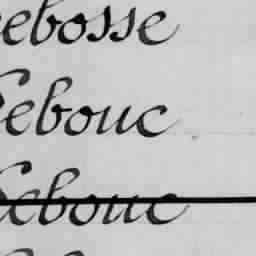 Lebosse
Lebouc
Lebouc